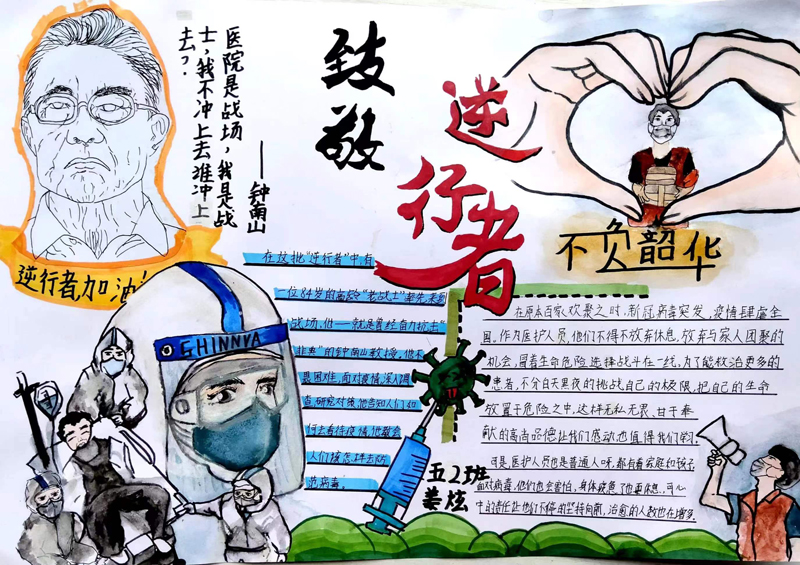 致敬
逆行者
医院是战场，我是战
士，我不冲上去谁冲上
去？.
——钟南山
逆行者，加油！
不负韶华
SHINNVA
在这批"逆行者"中，有
一位84岁的高龄"老战士"都先来到
战场，他一就是曾经奋力抗击"
非典"的钟南山教授，他不
畏困难，面对疫情，深入调
查，研究对策，他告知人们如
何去看待疫情，他教会
人们该怎样去防
范病毒。
五2班
姜炫
在原本百家欢聚之时，新冠病毒突发，疫情肆虐全
国。作为医护人员，他们不得不放弃休息，放弃与家人团聚的
机会，冒着生命危险选择战斗在一线，为了能救治更多的
患者，不分白天黑夜的挑战自己的极限，把自己的生命
放置于危险之中，这样无私无畏、甘于奉
献的高尚品德让我们感动也值得我们学习。
可是，医护人员也是普通人呀，都有着家庭和孩子，
面对病毒，他们也会害怕，身体疲惫了也要休息，可心
中的责任让他们不停的坚持向前，治愈的人数也在增多。